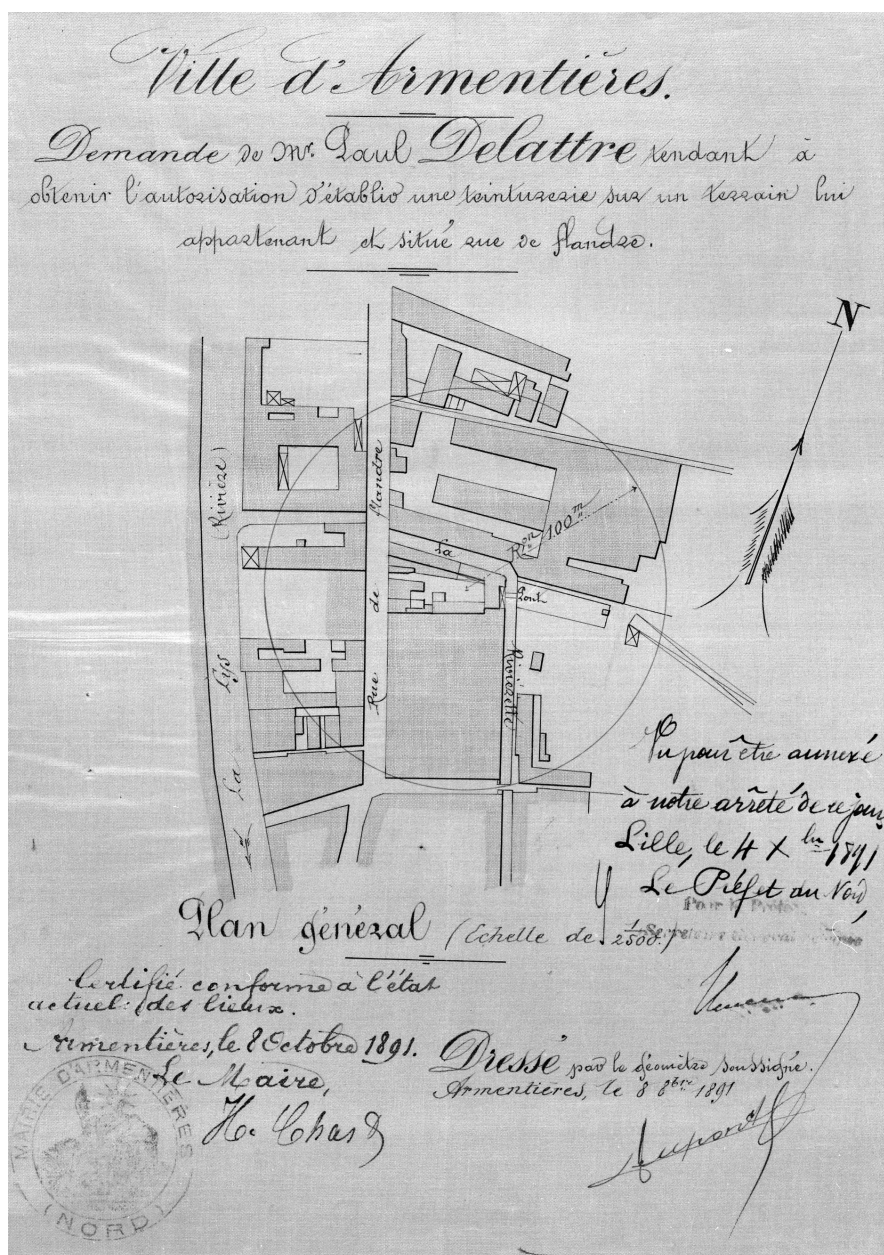 Ville d'Armentières.
Demande de Mr. Paul Delattre tendant à
obtenir l'autorisation d'établir une teinturerie sur un terrain lui
appartenant et situé rue de flandre.
N
Rivière)
Lys
La
Rue de flandre
Ron 100m
La
Pont
Rivièrette
Vu pour être annexé
à notre arrêté de ce jour
Lille, le 4 Xbre 1891
Le Préfet du Nord
Pour le Préfet,
Plan général (Echelle de 1/2500.)
Certifié conforme à l'état
actuel des lieux.
Armentières, le 8 Octobre 1891.
Le Maire,
H. Chas
MAIRIE D'ARMENTIÈRES
(NORD)
Dressé par le géomètre soussigné.
Armentières, le 8 8bre 1891
Dupont